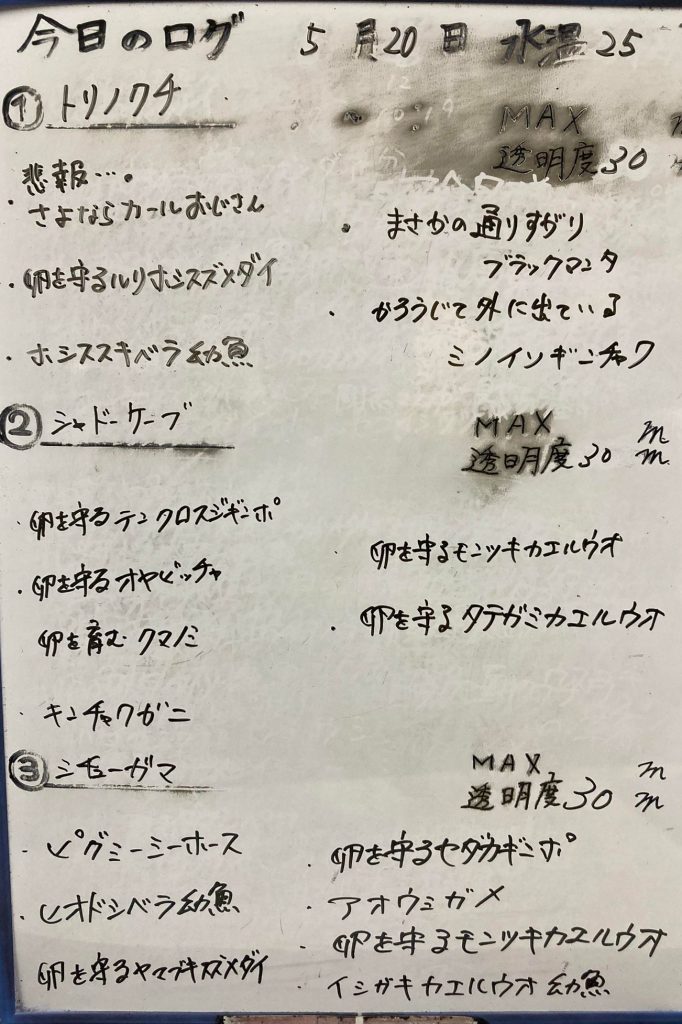 今日のログ 5月20日 水温25
① トリノクチ
MAX
透明度30
悲報…。
・さよならカールおじさん
・卵を守るルリホシスズメダイ
・ホシススキベラ幼魚
・まさかの通りすがり
ブラックマンタ
・かろうじて外に出ている
ミノイソギンチャク
② シャドーケーブ
MAX m
透明度30 m
・卵を守るテンクロスジギンポ
・卵を守るオヤビッチャ
卵を育むクマノミ
・キンチャクガニ
卵を守るモンツキカエルウオ
・卵を守るタテガミカエルウオ
③ シチューガマ
MAX m
透明度30 m
・ピグミーシーホース
・ヒオドシベラ幼魚
・卵を守るヤマブキスズメダイ
・卵を守るセダカギンポ
・アオウミガメ
・卵を守るモンツキカエルウオ
・イシガキカエルウオ幼魚